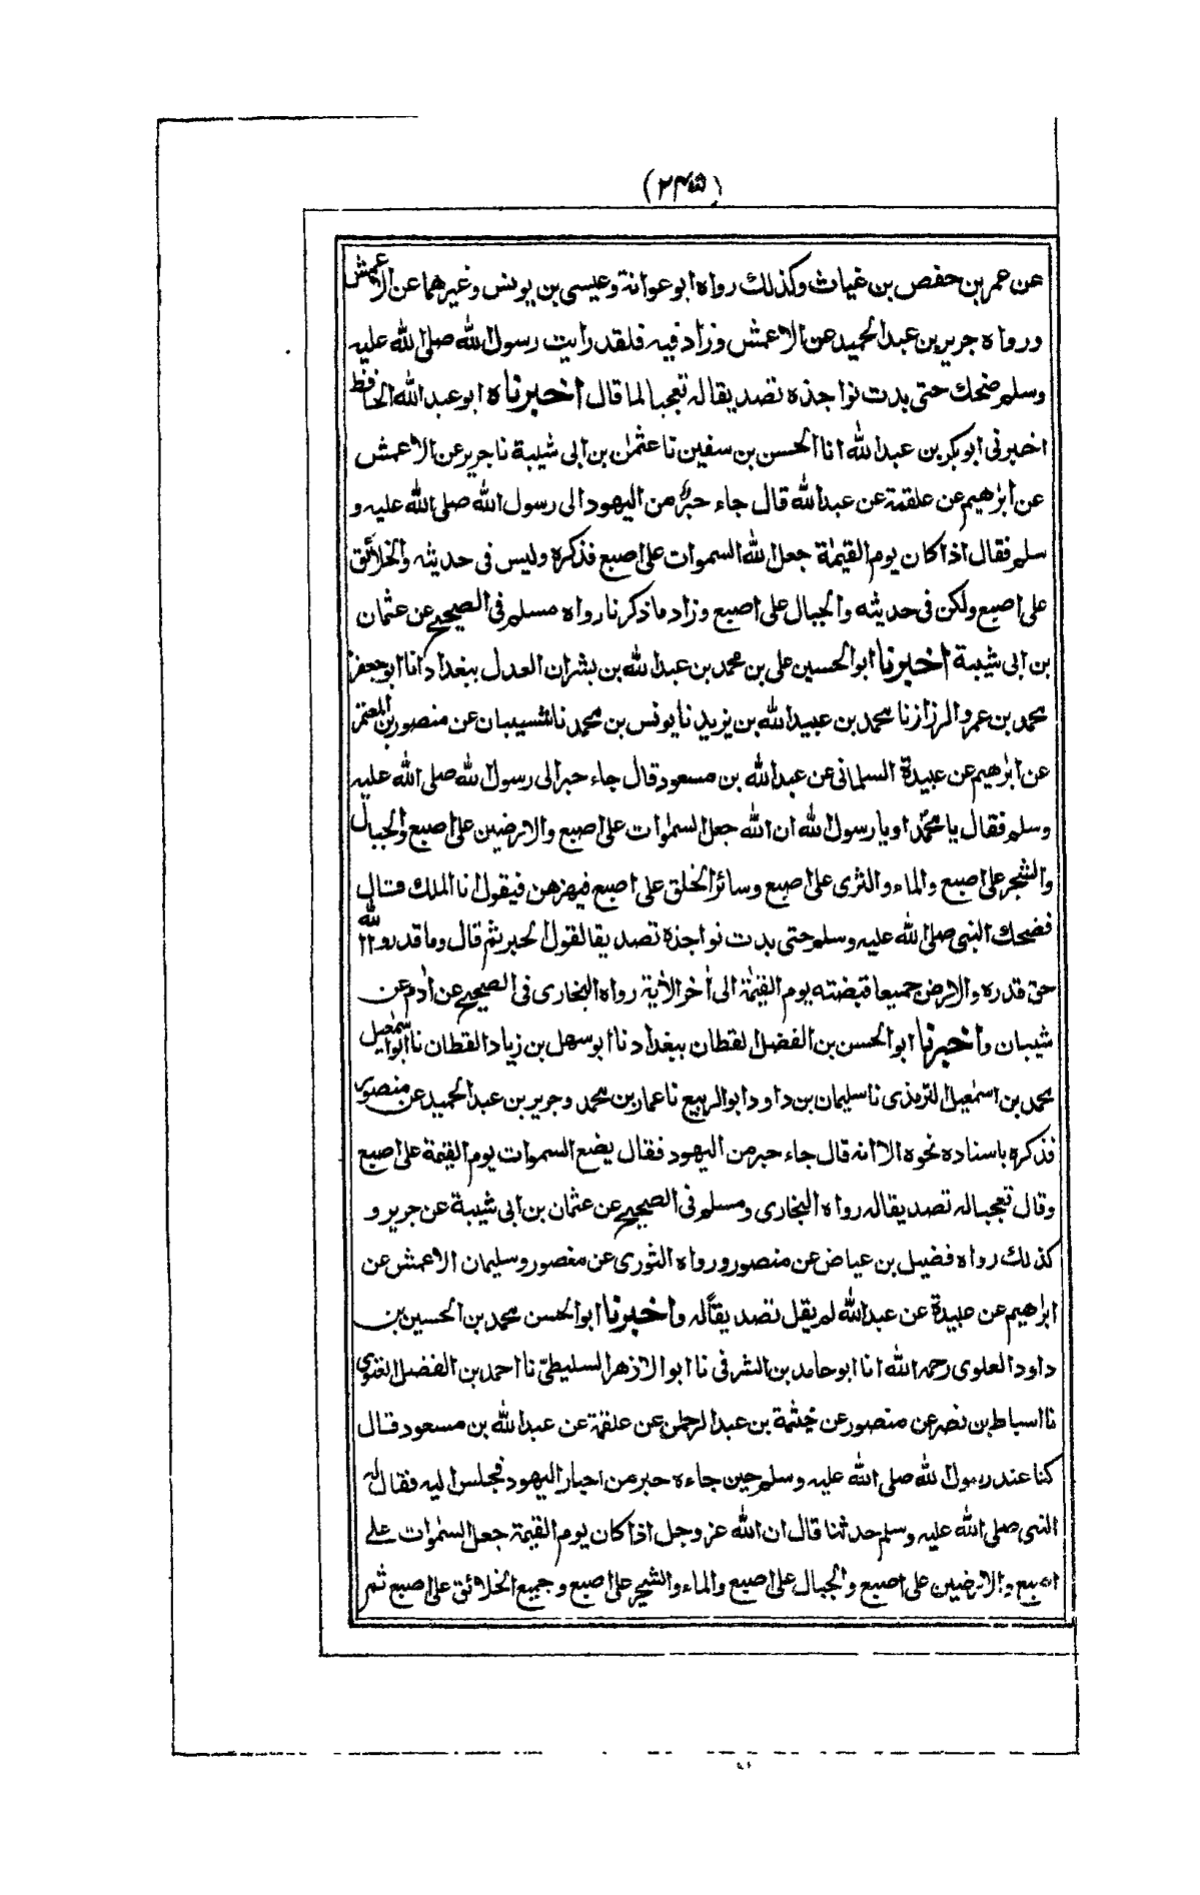 (۲۴۵)
عن عمر بن حفص بن غياث وكذلك رواه ابو عوانة وعيسى بن يونس وغيرهما عن الاعمش
ورواه جرير بن عبد الحميد عن الاعمش وزاد فيه فلقد رايت رسول الله صلى الله عليه
وسلم ضحك حتى بدت نواجذه تصديقا له تعجبا لما قال اخبرناه ابو عبد الله الحافظ
اخبرنى ابو بكر بن عبد الله انا الحسن بن سفين نا عثمٰن بن ابى شيبة نا جرير عن الاعمش
عن ابرٰهيم عن علقمة عن عبد الله قال جاء حبرٌ من اليهود الى رسول الله صلى الله عليه و
سلم فقال اذا كان يوم القيمٰة جعل الله السموات على اصبع فذكره وليس فى حديثه والخلائق
على اصبع ولكن فى حديثه والجبال على اصبع وزاد ما ذكرنا رواه مسلم فى الصحيح عن عثمان
بن ابى شيبة اخبرنا ابو الحسين على بن محمد بن عبد الله بن بشران العدل ببغداد انا ابو جعفر
محمد بن عمرو الرزاز نا محمد بن عبيد الله بن يزيد نا يونس بن محمد نا شيبان عن منصور بن المعتمر
عن ابرٰهيم عن عبيدة السلمانى عن عبد الله بن مسعود قال جاء حبر الى رسول الله صلى الله عليه
وسلم فقال يا محمد او يا رسول الله ان الله جعل السمٰوات على اصبع والارضين على اصبع والجبال
والشجر على اصبع والماء والثرى على اصبع وسائر الخلق على اصبع فيهزهن فيقول انا الملك قال
فضحك النبى صلى الله عليه وسلم حتى بدت نواجذه تصديقا لقول الحبر ثم قال وما قدروا الله
حق قدره والارض جميعا قبضته يوم القيٰمة الى اٰخر الاٰية رواه البخارى فى الصحيح عن اٰدم عن
شيبان واخبرنا ابو الحسن بن الفضل القطان ببغداد نا ابو سهل بن زياد القطان نا ابو اسمٰعيل
محمد بن اسمٰعيل الترمذى نا سليمان بن داود ابو الربيع نا عمار بن محمد وجرير بن عبد الحميد عن منصور
فذكره باسناده نحوه الا انه قال جاء حبر من اليهود فقال يضع السموات يوم القيٰمة على اصبع
وقال تعجبا له تصديقا له رواه البخارى ومسلم فى الصحيح عن عثمان بن ابى شيبة عن جرير و
كذلك رواه فضيل بن عياض عن منصور ورواه الثورى عن منصور وسليمان الاعمش عن
ابرٰهيم عن عبيدة عن عبد الله لم يقل تصديقاً له واخبرنا ابو الحسن محمد بن الحسين بن
داود العلوى رحمه الله انا ابو حامد بن الشرفى نا ابو الازهر السليطىّ نا احمد بن الفضل
نا اسباط بن نصر عن منصور عن خيثمة بن عبد الرحمٰن عن علقمة عن عبد الله بن مسعود قال
كنا عند رسول الله صلى الله عليه وسلم حين جاءه حبر من احبار اليهود فجلس اليه فقال له
النبى صلى الله عليه وسلم حدثنا قال ان الله عز وجل اذا كان يوم القيٰمة جعل السمٰوات على
اصبع والارضين على اصبع والجبال على اصبع والماء والشجر على اصبع وجميع الخلائق على اصبع ثم